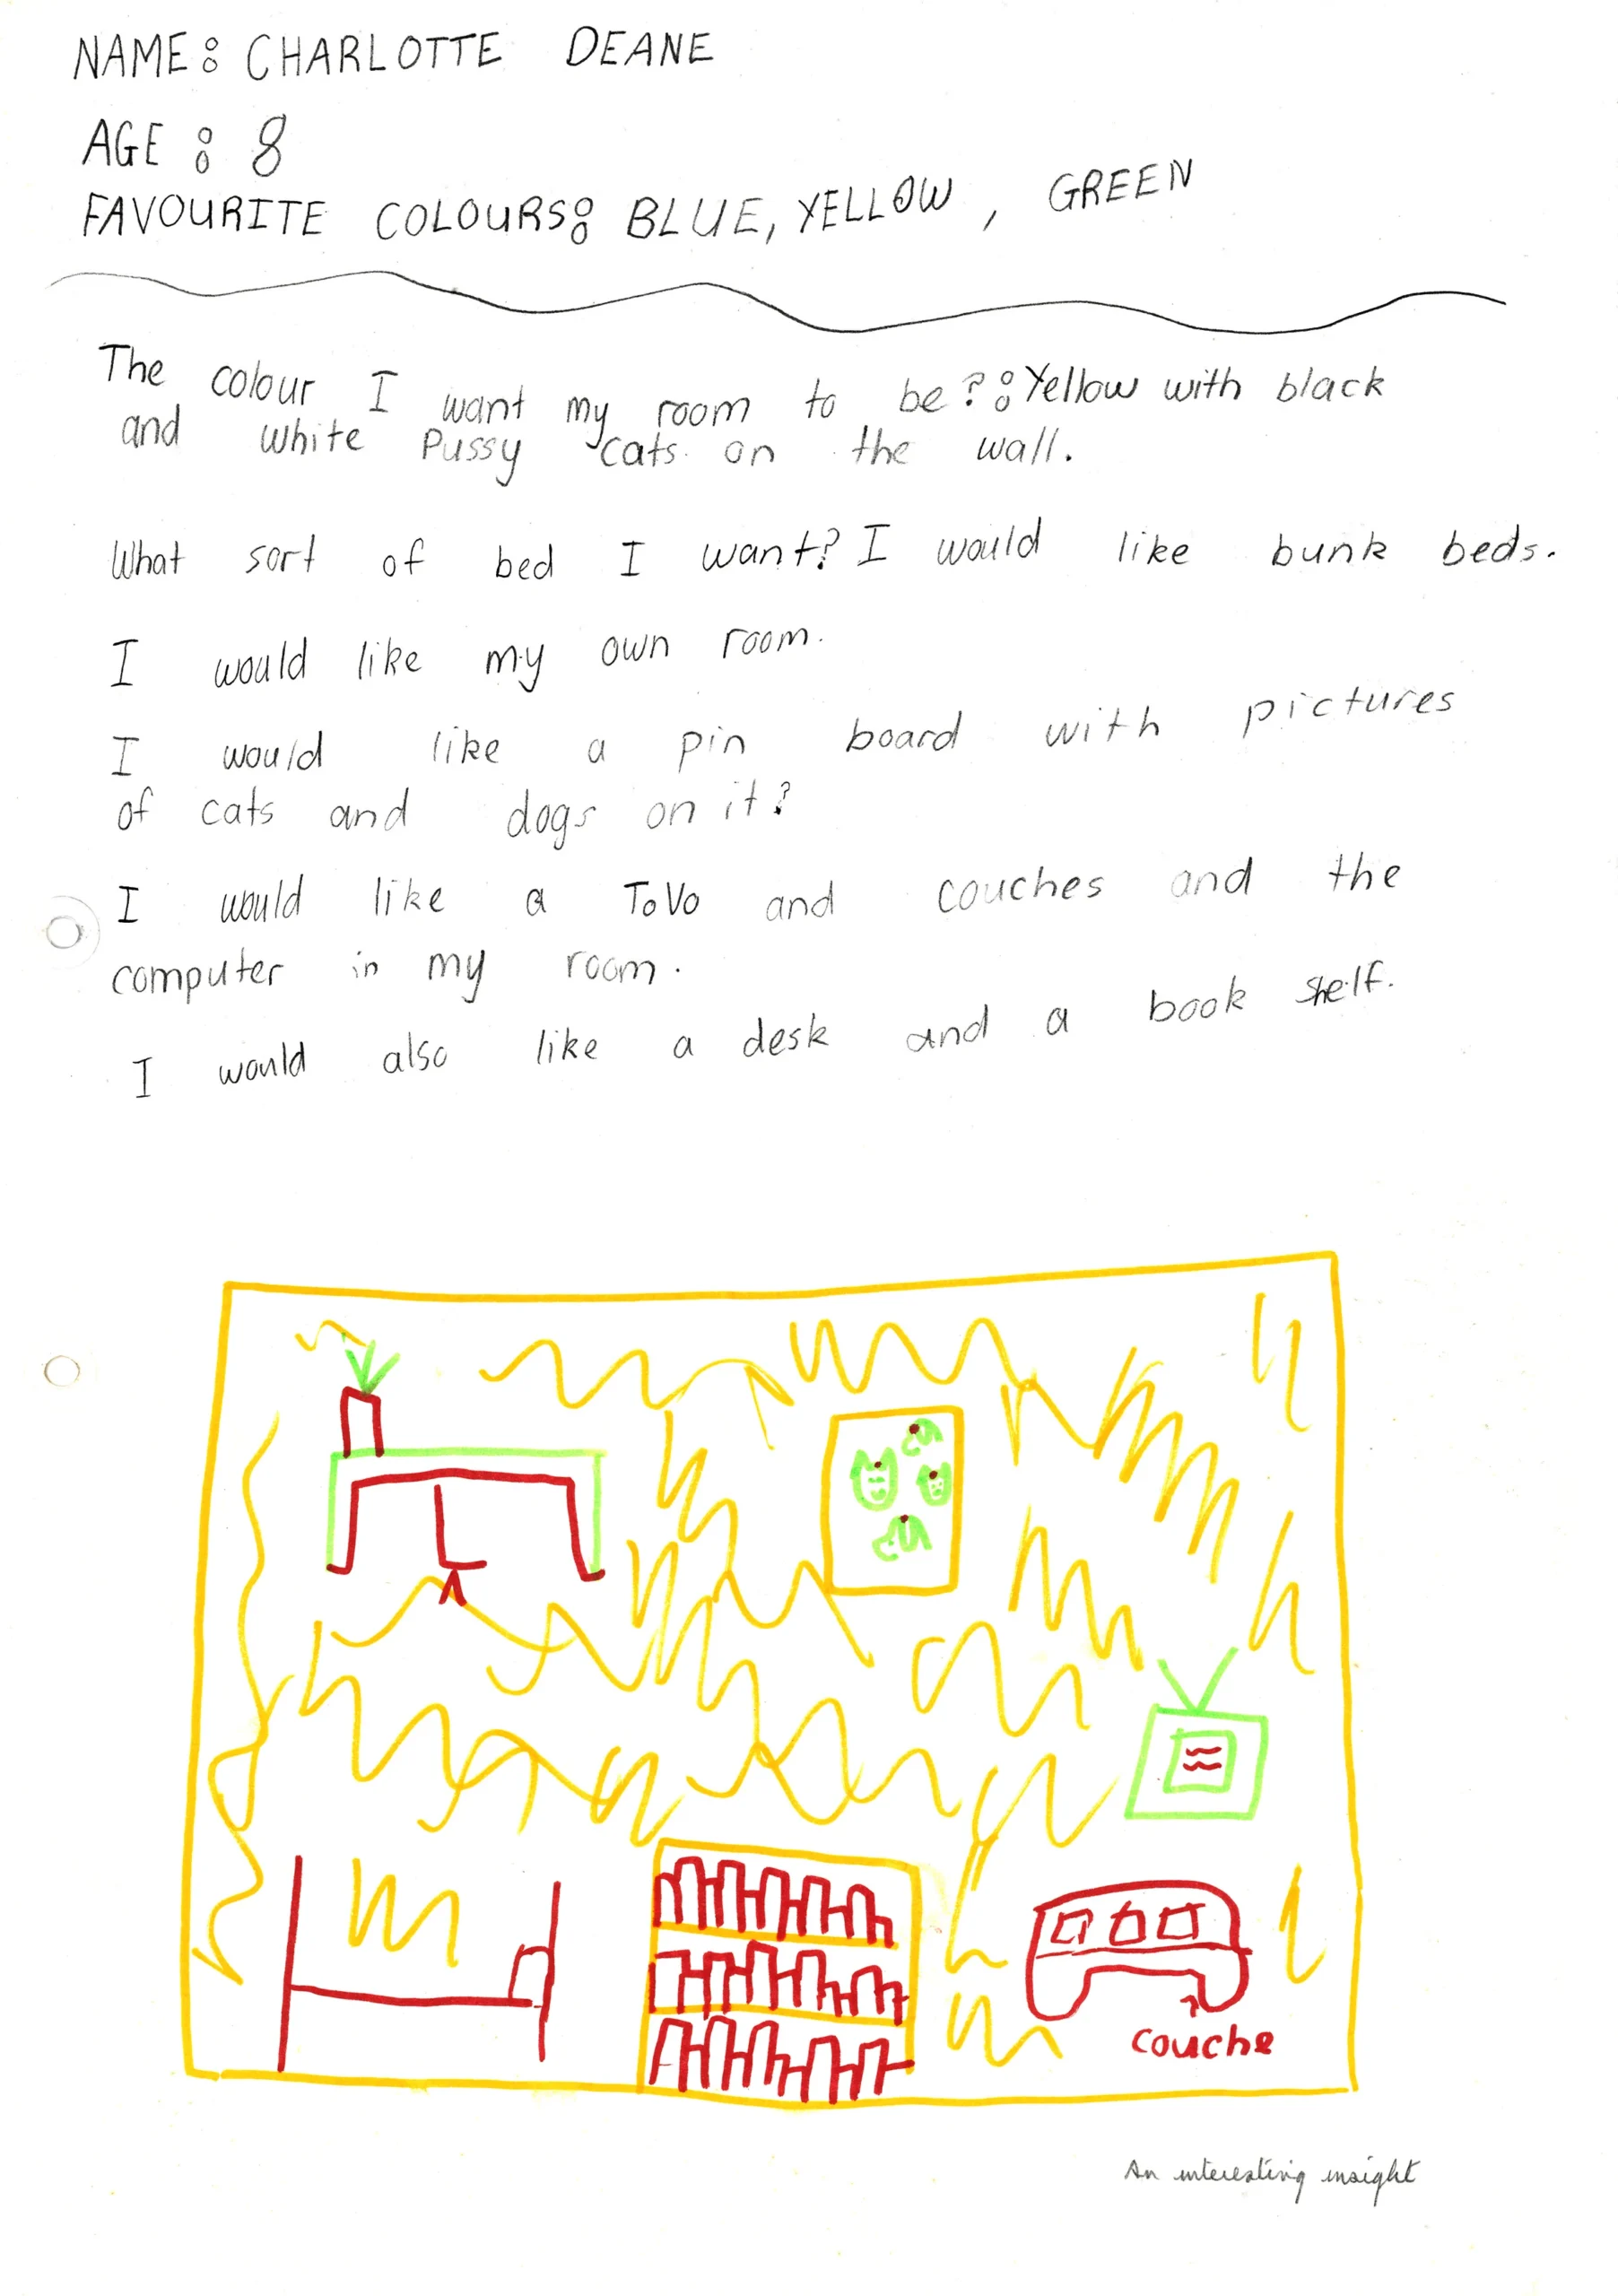 NAME: CHARLOTTE DEANE
AGE : 8
FAVOURITE COLOURS: BLUE, YELLOW , GREEN
The colour I want my room to be?:Yellow with black
and white Pussy cats on the wall.
What sort of bed I want? I would like bunk beds.
I would like my own room.
I would like a pin board with pictures
of cats and dogs on it?
I would like a T.V. and couches and the
computer in my room.
I would also like a desk and a book shelf.
couche
An interesting insight